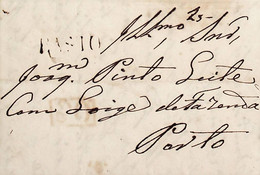 Illmo Snr,
Joaqm Pinto Leite
Com Loige de Fazenda
Porto